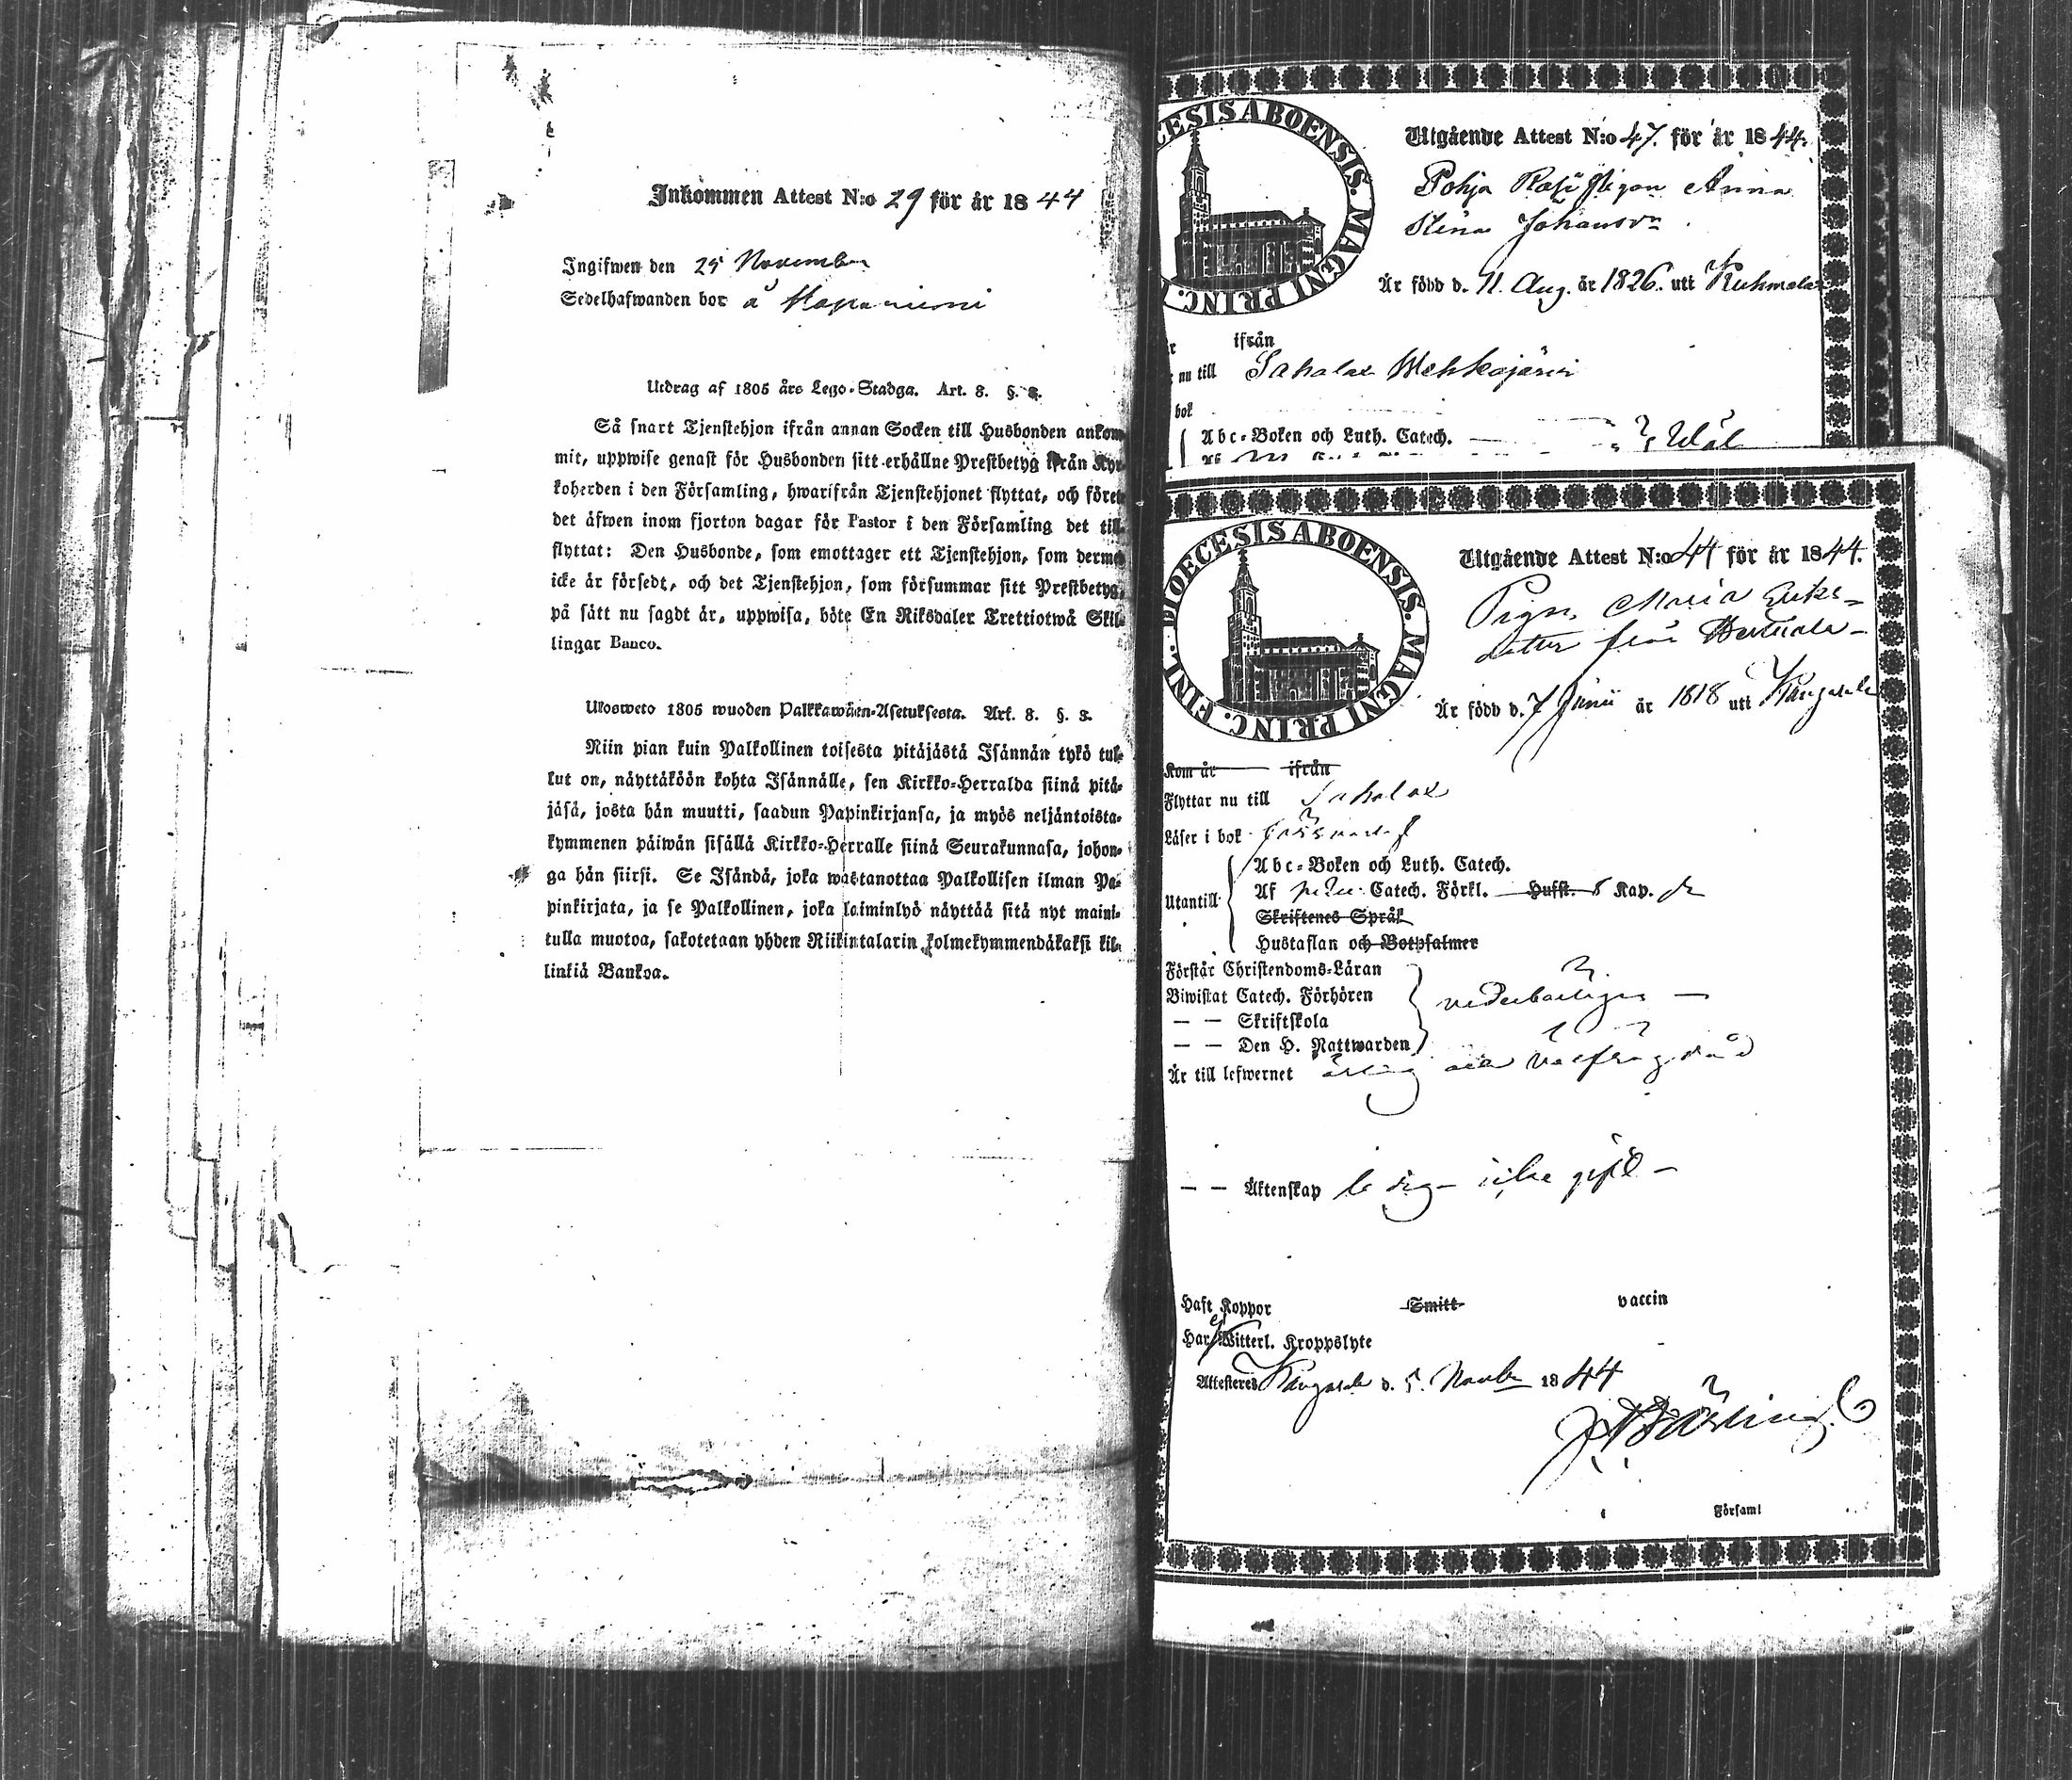 Inkommen Attest N:o 29 för år 1844
Ingifwen den 25 November
Sedelhafwanden bor å Haapaniemi
Utdrag af 1805 års Lego-Stadga. Art. 8. §. 3.
Så snart Tjenstehjon ifrån annan Socken till Husbonden ankom-
mit, uppwise genast för Husbonden sitt erhållne Prestbetyg ifrån Kyr-
koherden i den Församling, hwarifrån Tjenstehjonet flyttat, och förete
det äfwen inom fjorton dagar för Pastor i den Församling det till-
flyttat: Den Husbonde, som emottager ett Tjenstehjon, som dermed
icke är försedt, och det Tjenstehjon, som försummar sitt Prestbetyg,
på sätt nu sagdt är, uppwisa, böte En Riksdaler Trettiotwå Skil-
lingar Banco.
Ulosweto 1805 wuoden Palkkawäen-Asetuksesta. Art. 8. §. 3.
Niin pian kuin Palkollinen toisesta pitäjästä Isännän tykö tul-
lut on, näyttäköön kohta Isännälle, sen Kirkko-Herralda siinä pitä-
jäsä, josta hän muutti, saadun Papinkirjansa, ja myös neljäntoista-
kymmenen päiwän sisällä Kirkko-Herralle siinä Seurakunnasa, johon-
ga hän siirsi. Se Isändä, joka wastanottaa Palkollisen ilman Pa-
pinkirjata, ja se Palkollinen, joka laiminlyö näyttää sitä nyt maini-
tulla muotoa, sakotetaan yhden Riikintalarin kolmekymmendäkaksi kil-
linkiä Bankoa.
DIOECESIS ABOENSIS. MAGNI PRINC.
Utgående Attest N:o 47. för år 1844.
Pohja Pigan Anna
Stina Johansdr
Är född d. 11. Aug. år 1826. uti Kuhmalax
ifrån
nu till Sahalax Wehkajärvi
bok
Abc-Boken och Luth. Catech.
DIOECESIS ABOENSIS. MAGNI PRINC. FINL.
Utgående Attest N:o 44 för år 1844.
Pigan Maria Eriks-
dotter från
Är född d. 7 Junii år 1818 uti Kangasala
Kom år ifrån
Flyttar nu till Sahalax
Läser i bok
Utantill
Abc-Boken och Luth. Catech.
Af Catech. Förkl. Hufst. 8 Kap.
Skriftenes Språk
Hustaflan och Botpsalmer
Förstår Christendoms-Läran
Biwistat Catech. Förhören
— — Skriftskola
— — Den H. Nattwarden
vederbörligen —
Är till lefwernet ärlig och välfrägdad
— — Äktenskap ledig icke gift —
Haft Koppor Smitt vaccin
Har ej Witterl. Kroppslyte
Attesteras Kangasala d. 5. Novemb. 1844
Församl